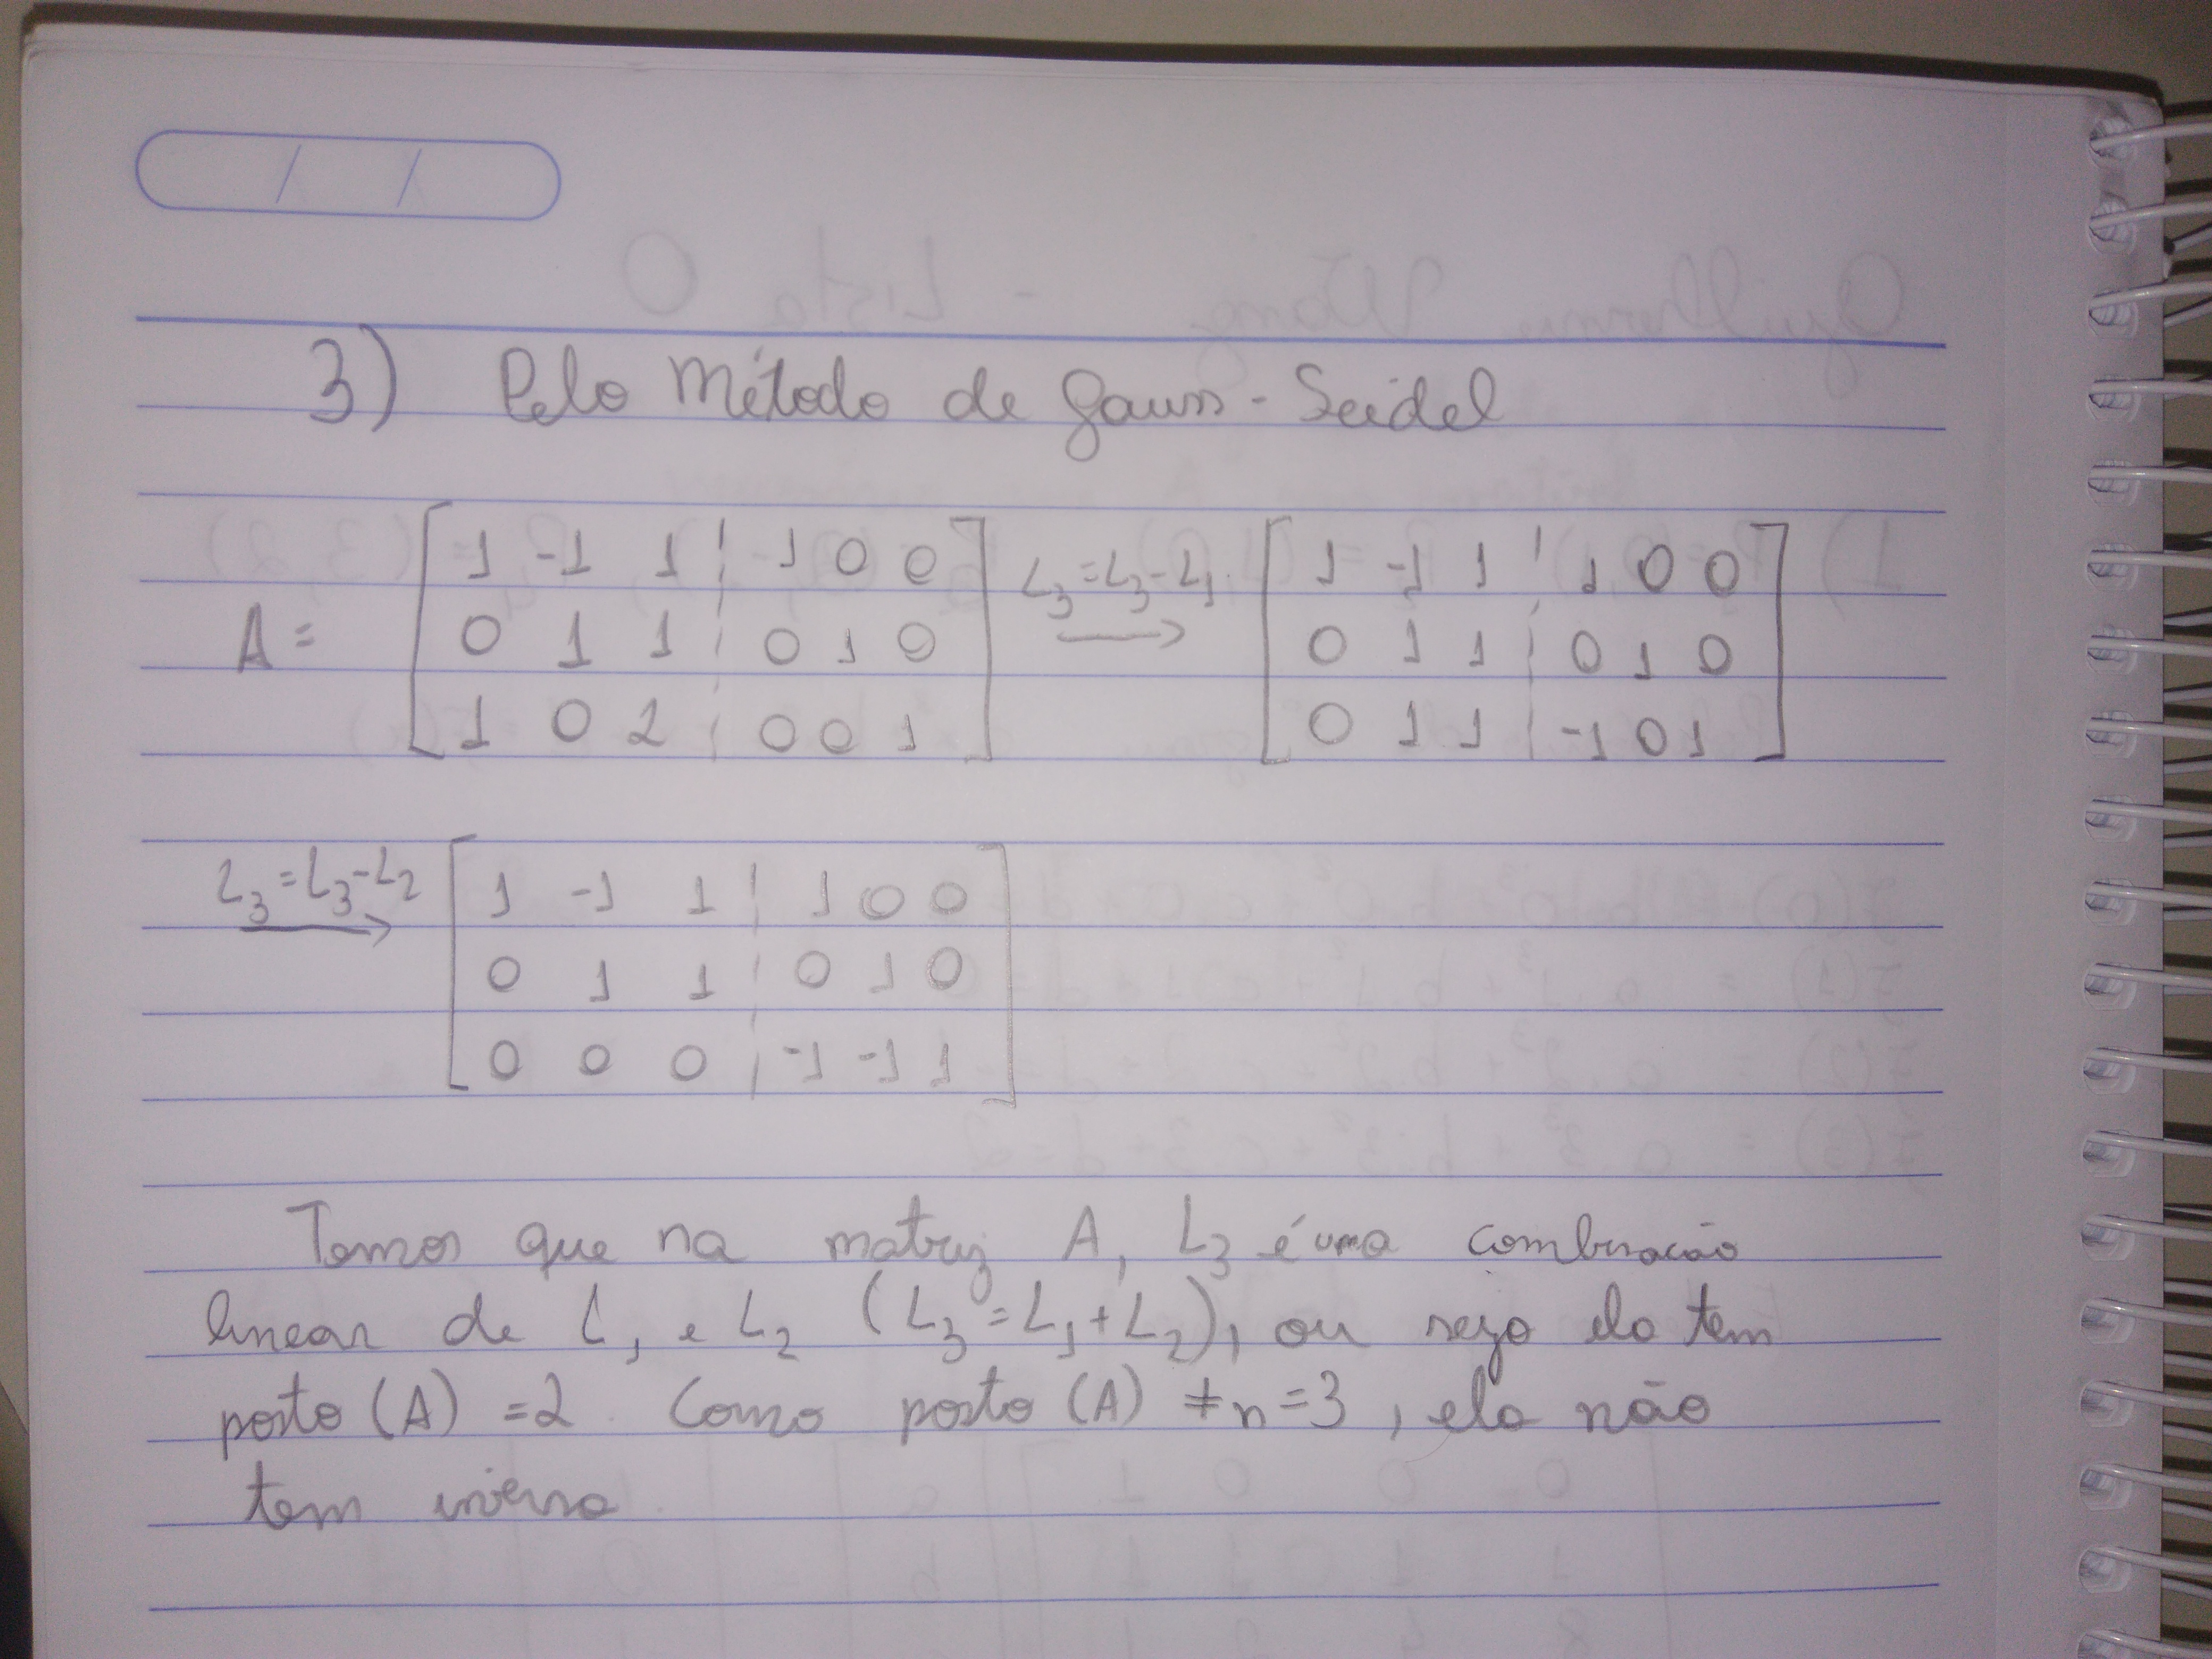 3) Pelo Método de Gauss-Seidel
A = [ 1 -1 1 ¦ 1 0 0 ] L₃=L₃-L₁ → [ 1 -1 1 ¦ 1 0 0 ]
[ 0 1 1 ¦ 0 1 0 ] [ 0 1 1 ¦ 0 1 0 ]
[ 1 0 2 ¦ 0 0 1 ] [ 0 1 1 ¦ -1 0 1 ]
L₃=L₃-L₂ → [ 1 -1 1 ¦ 1 0 0 ]
[ 0 1 1 ¦ 0 1 0 ]
[ 0 0 0 ¦ -1 -1 1 ]
Temos que na matriz A, L₃ é uma combinação
linear de L₁ e L₂ (L₃=L₁+L₂), ou seja ela tem
posto (A) =2. Como posto (A) ≠ n=3, ela não
tem inversa